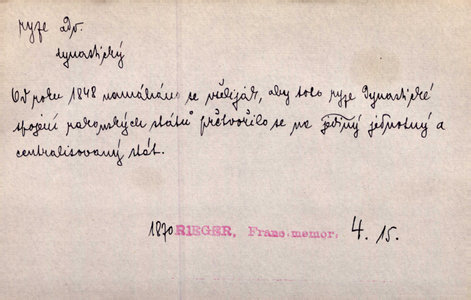 ryze adv.
dynastický
Od roku 1848 namáháno se všelijak, aby toto ryze dynastické
spojení rakouských států přetvořilo se na jediný jednotný a
centralisovaný stát.
1870 RIEGER, Franc. memor. 4. 15.